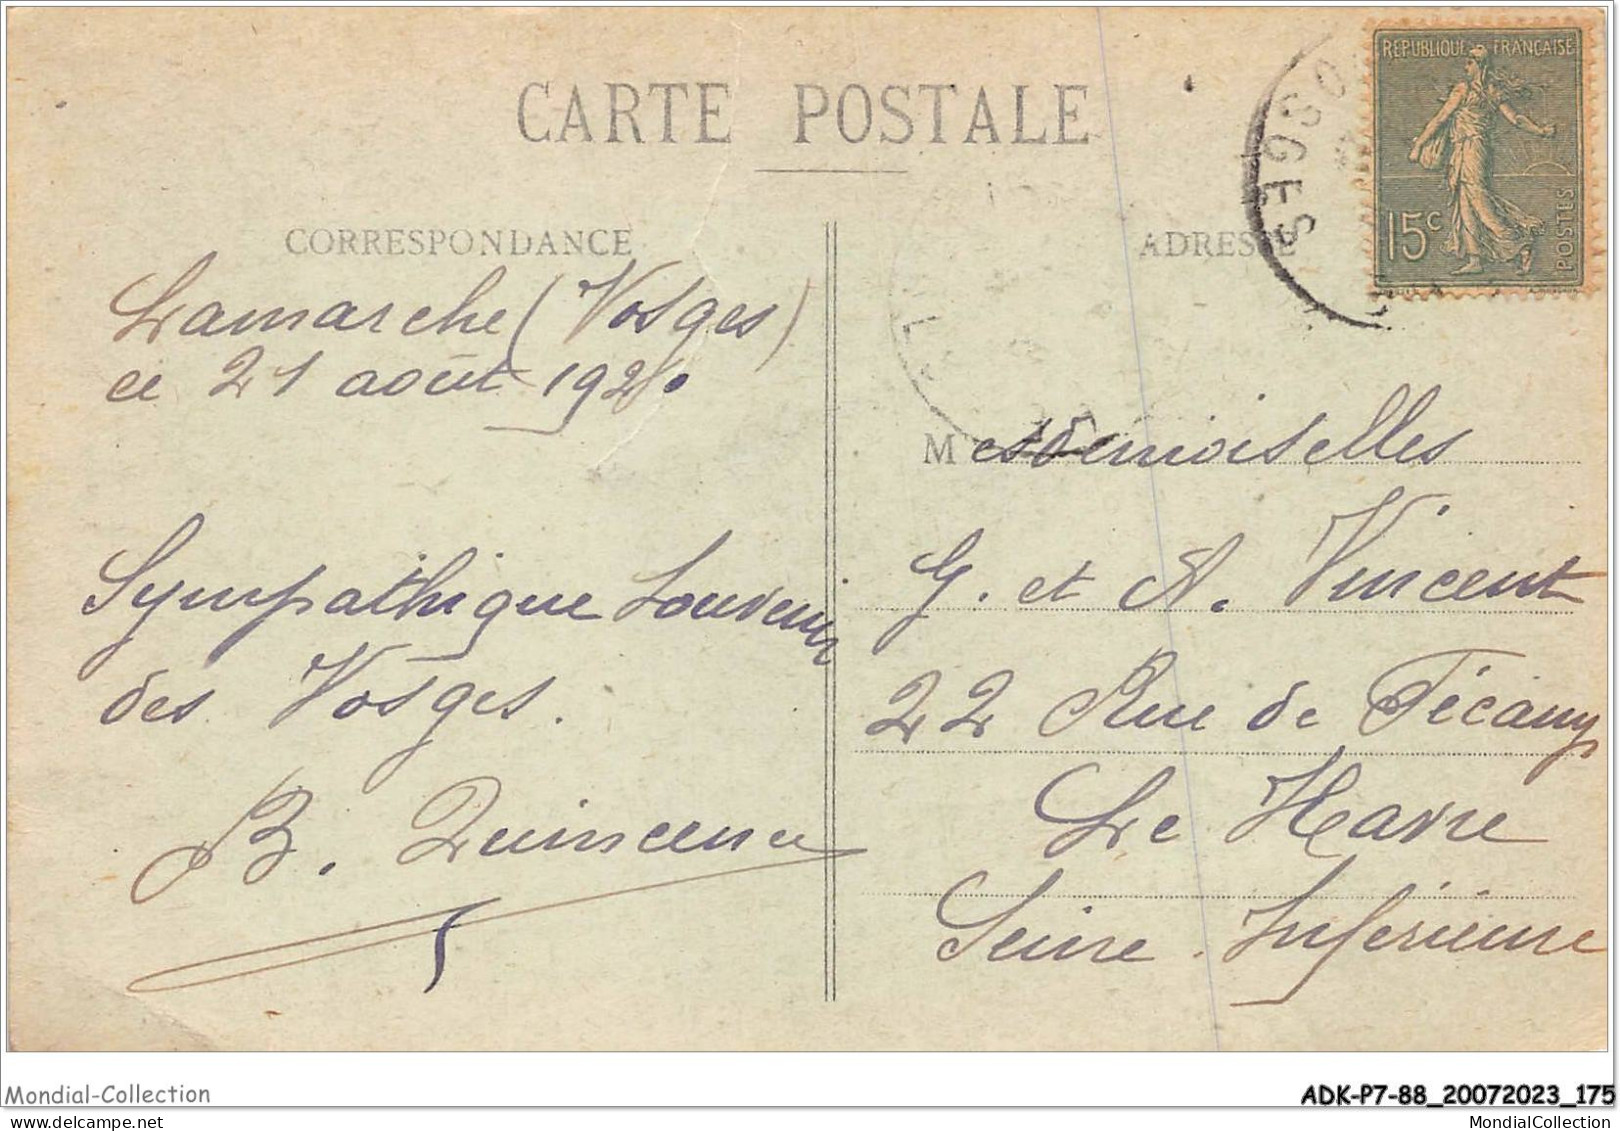 CARTE POSTALE
CORRESPONDANCE
Lamarche (Vosges)
ce 21 août 1920
Sympathique Souvenir
des Vosges.
ADRESSE
REPUBLIQUE FRANÇAISE
15c
POSTES
OSGES
Mesdemoiselles
G. et A. Vincent
22 Rue de Fécamp
Le Havre
Seine Inférieure
Mondial-Collection
ADK-P7-88_20072023_175
MondialCollection